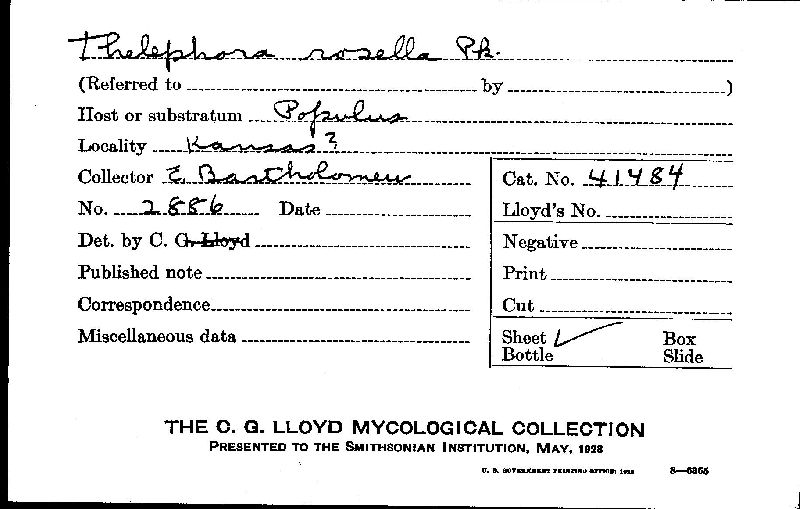 Thelephora rosella Pk.
(Referred to by )
Host or substratum Populus
Locality Kansas?
Collector E. Bartholomew
No. 2886 Date
Det. by C. G. Lloyd
Published note
Correspondence
Miscellaneous data
Cat. No. 41484
Lloyd's No.
Negative
Print
Cut
Sheet ✓ Box
Bottle Slide
THE C. G. LLOYD MYCOLOGICAL COLLECTION
PRESENTED TO THE SMITHSONIAN INSTITUTION, MAY, 1928
U. S. GOVERNMENT PRINTING OFFICE: 1928 8—6365